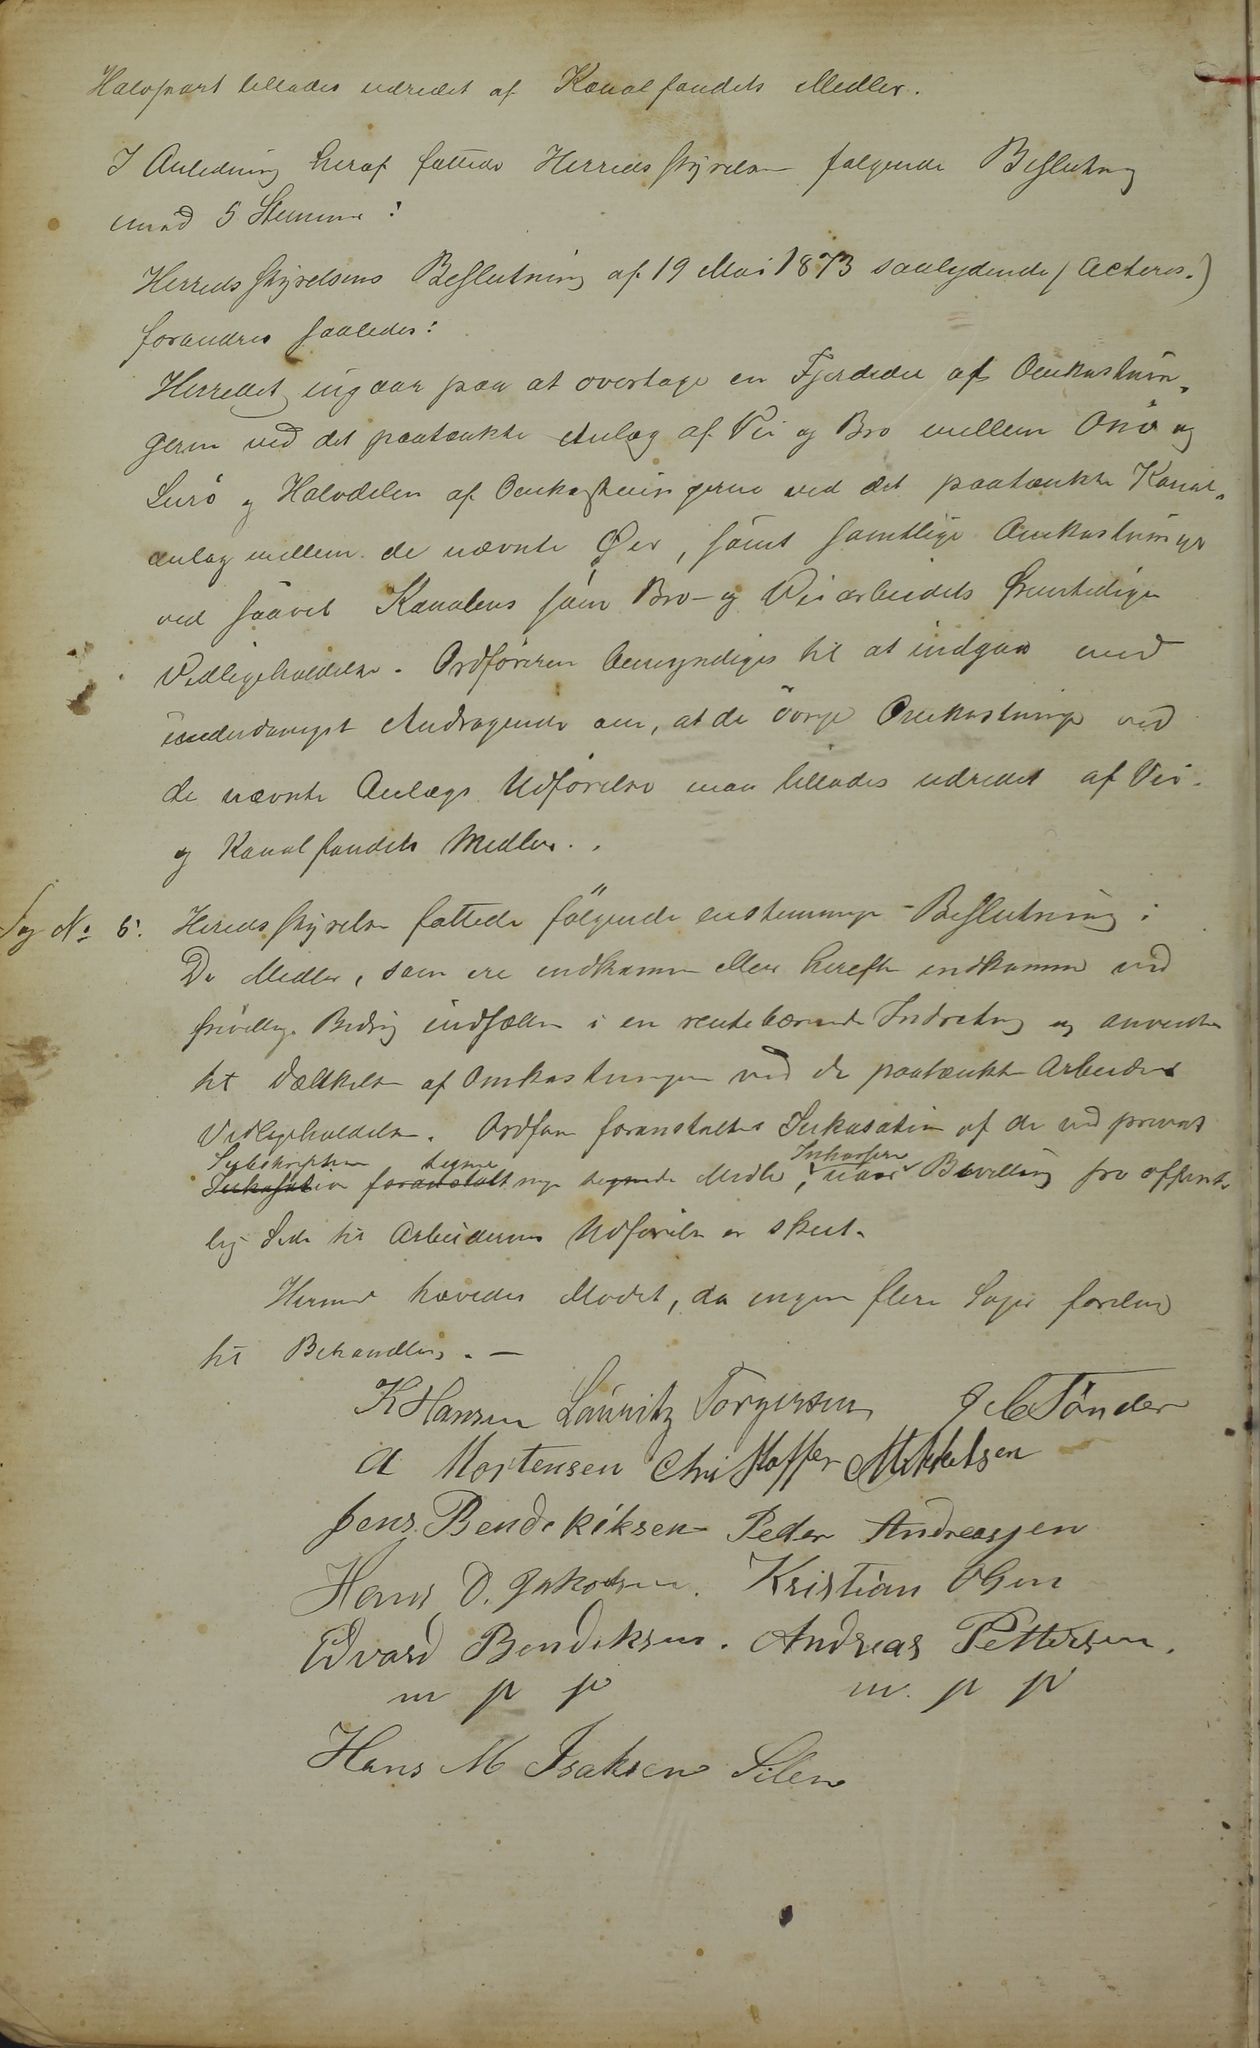 Halvpart tillades udredet af Kanalfondets Midler.
I Anledning heraf fattede Herredsstyrelsen følgende Beslutning
mod 5 Stemmer:
Herredsstyrelsens Beslutning af 19 Mai 1873 saalydende (Acteres.)
forandres saaledes:
Herredet indgaar paa at overtage en Fjerdedel af Omkostnin-
gerne ved det paatænkte Anlæg af Vei og Bro mellem Onö og
Lurö og Halvdelen af Omkostningerne ved det paatænkte Kanal-
anlæg mellem de nævnte Øer, samt samtlige Omkostninger
ved saavel Kanalens som Bro- og Veiarbeidets fremtidige
Vedligeholdelse. Ordföreren bemyndiges til at indgaa med
underdanigst Andragende om, at de övrige Omkostninger ved
de nævnte Anlægs Udförelse maa tillades udredet af Vei-
og Kanalfondets Midler.
Sag No 5. Heredsstyrelsen fattede fölgende enstemmige Beslutning:
De Midler, som ere indkomne eller herefter indkomme ved
frivillige Bidrag indsættes i en rentebærende Indretning og anvendes
til Dækkelse af Omkostningerne ved de paatænkte Arbeiders
Vedligeholdelse. Ordf. foranstalter Inkasation af de ved privat
Subskription tegnede Inkassere
Inkasation foranstalt tegnede Midler, naar Bevilling fra offent-
lig Side til Arbeidernes Udförelse er skeet.
Hermed hævedes Mödet, da ingen flere Sager forelaa
til Behandling. —
K Hansen Lauritz Torgersen J C Tönder
A Mortensen Christoffer Mikkelsen
Jens Bendikiksen Peder Andreassen
Hans D. Jakobsen. Kristian Olsen
Edvard Bendiksen. Andreas Pettersen.
m p p m. p p
Hans M Isaksen Silen